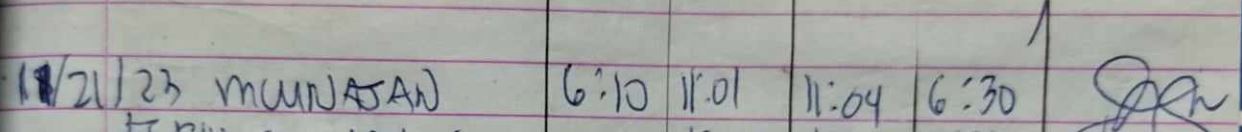 11/21/23 MCUNASAN 6:10 11:01 11:04 6:30